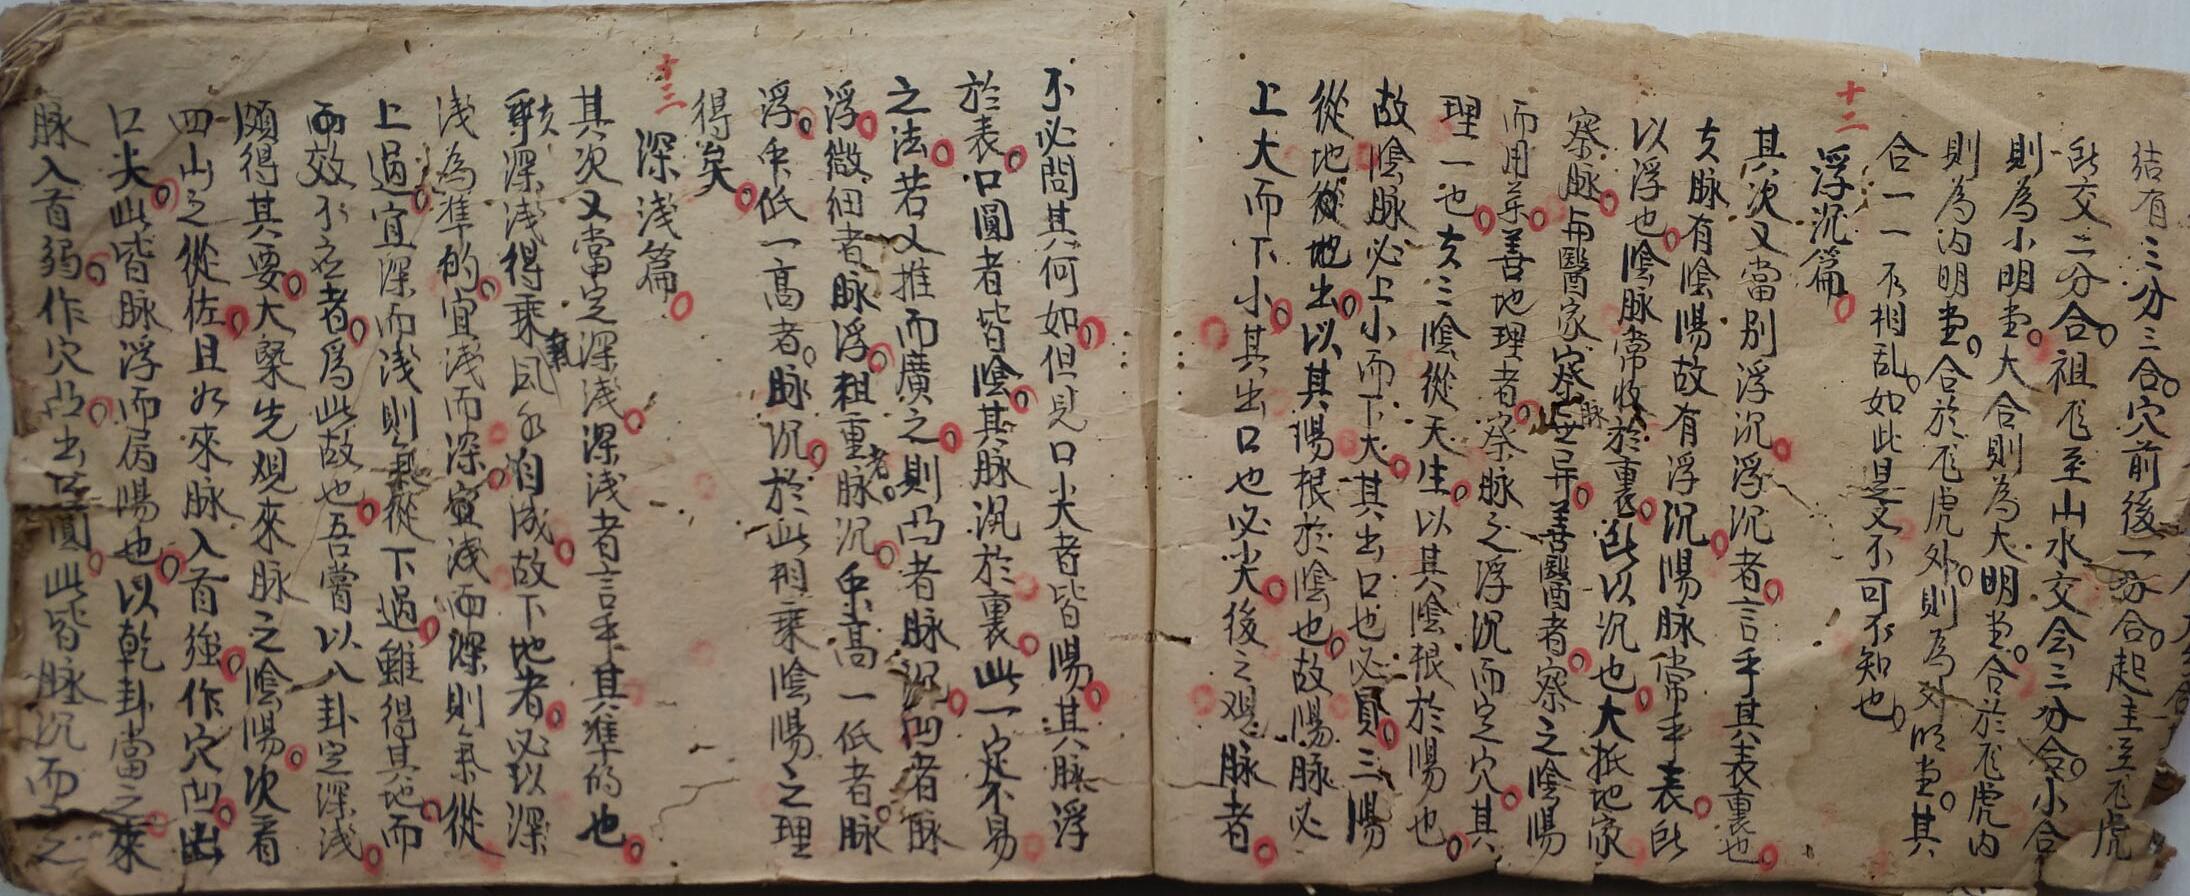 結有三分三合穴前後一分合起主至厐虎
所交二分合祖厐至山水交会三分合小合
則為小明堂大合則為大明堂合於厐虎内
則為内明堂合於厐虎外則為外明堂其
合一一不相乱如此是又不可不知也
十二
浮沉篇
其次又當别浮沉浮沉者言乎其表裏也
夫脉有陰陽故有浮沉陽脉常乎表所
以浮也陰脉常收於裏所以沉也大抵地家
察脉與醫家察脉無异善醫者察之陰陽
而用葯善地理者察脉之浮沉而定穴其
理一也夫三陰從天生以其陰根於陽也
故陰脉必上小而下大其出口也必員三陽
從地從地出以其陽根於陰也故陽脉必
上大而下小其出口也必尖後之观脉者
不必問其何如但見口尖者皆陽其脉浮
於表口圓者皆陰其脉沉於裏此一定不易
之法若又推而廣之則凸者脉沉凹者脉
浮微细者脉浮粗重者脉沉衆高一低者脉
浮衆低一高者脉沉於此相乗陰陽之理
得矣
十三
深淺篇
其次又當定深淺深淺者言乎其準的也
夫深淺得乗風水自成故下地者必以深
淺為準的宜淺而深宜淺而深則氣從
上過宜深而淺則氣從下過雖得其地而
而效不应者為此故也吾嘗以八卦定深淺
頗得其要大槩先观來脉之陰陽次看
四山之從佐且如來脉入首強作穴凹出
口尖此皆脉浮而属陽也以乾卦當之來
脉入首弱作穴凸出口圓此皆脉沉而